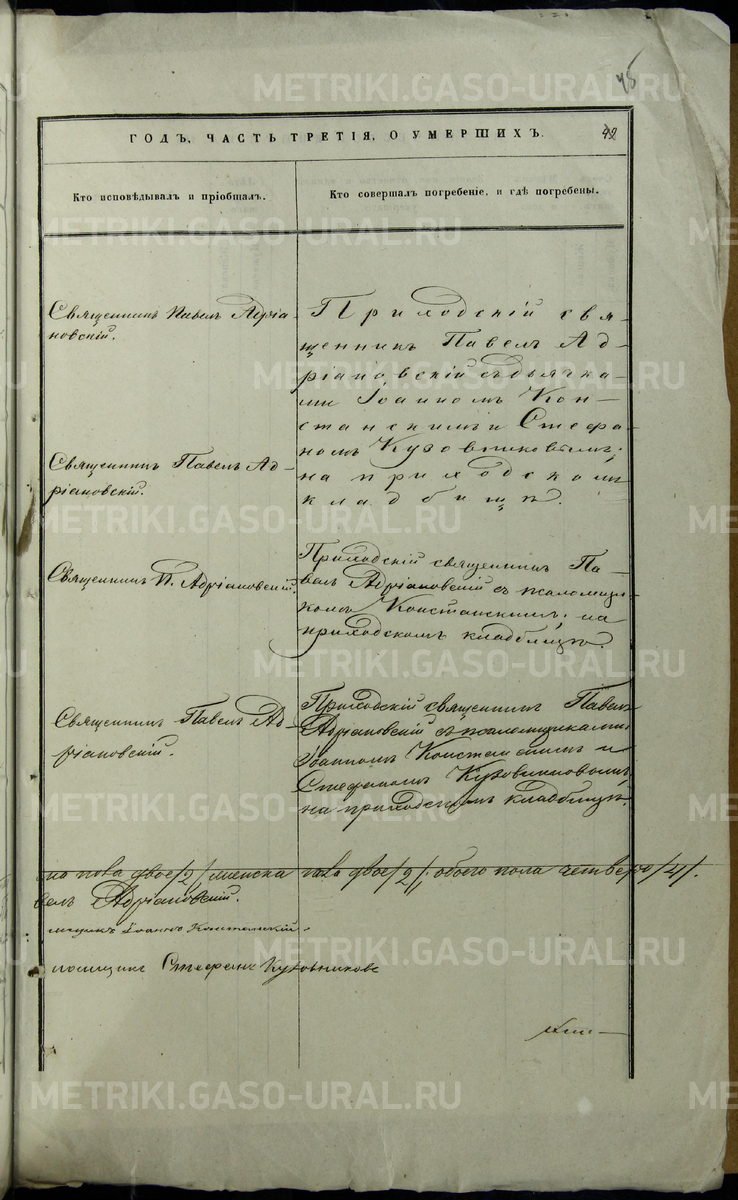 45
ГОДЪ, ЧАСТЬ ТРЕТІЯ, О УМЕРШИХЪ.
42
Кто исповѣдывалъ и пріобщалъ.
Кто совершалъ погребеніе, и гдѣ погребены.
Священникъ Павелъ Адріа-
новскій.
Приходскій свя-
щенникъ Павелъ Ад-
ріановскій съ дьячка-
ми Іоанномъ Кон-
станскимъ и Стефа-
номъ Кузовниковымъ;
на приходскомъ
кладбищѣ.
Священникъ Павелъ Ад-
ріановскій.
Священникъ П. Адріановскій.
Приходскій священникъ Па-
велъ Адріановскій съ псаломщи-
комъ Констанскимъ; на
приходскомъ кладбищѣ.
Священникъ Павелъ Ад-
ріановскій.
Приходскій священникъ Павелъ
Адріановскій съ псаломщиками
Іоанномъ Констанскимъ и
Стефаномъ Кузовниковымъ,
на приходскомъ кладбищѣ.
пола двое /2/ женска пола двое /2/, обоего пола четверо /4/.
велъ Адріановскій.
мщикъ Іоаннъ Констанскій.
ломщикъ Стефанъ Кузовниковъ
METRIKI.GASO-URAL.RU